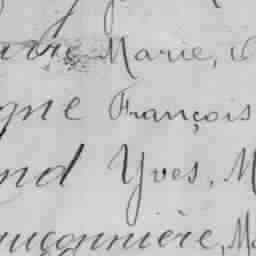 Marie,
gne François
nd Yves, M
uçonnière, Ma